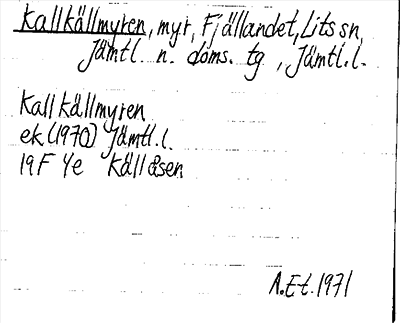 Kallkällmyren, myr, Fjällandet, Lits sn,
Jämtl. n. doms. tg , Jämtl.l.
Kallkällmyren
ek (1970) Jämtl.l.
19F 4e Källåsen
A.Et.1971